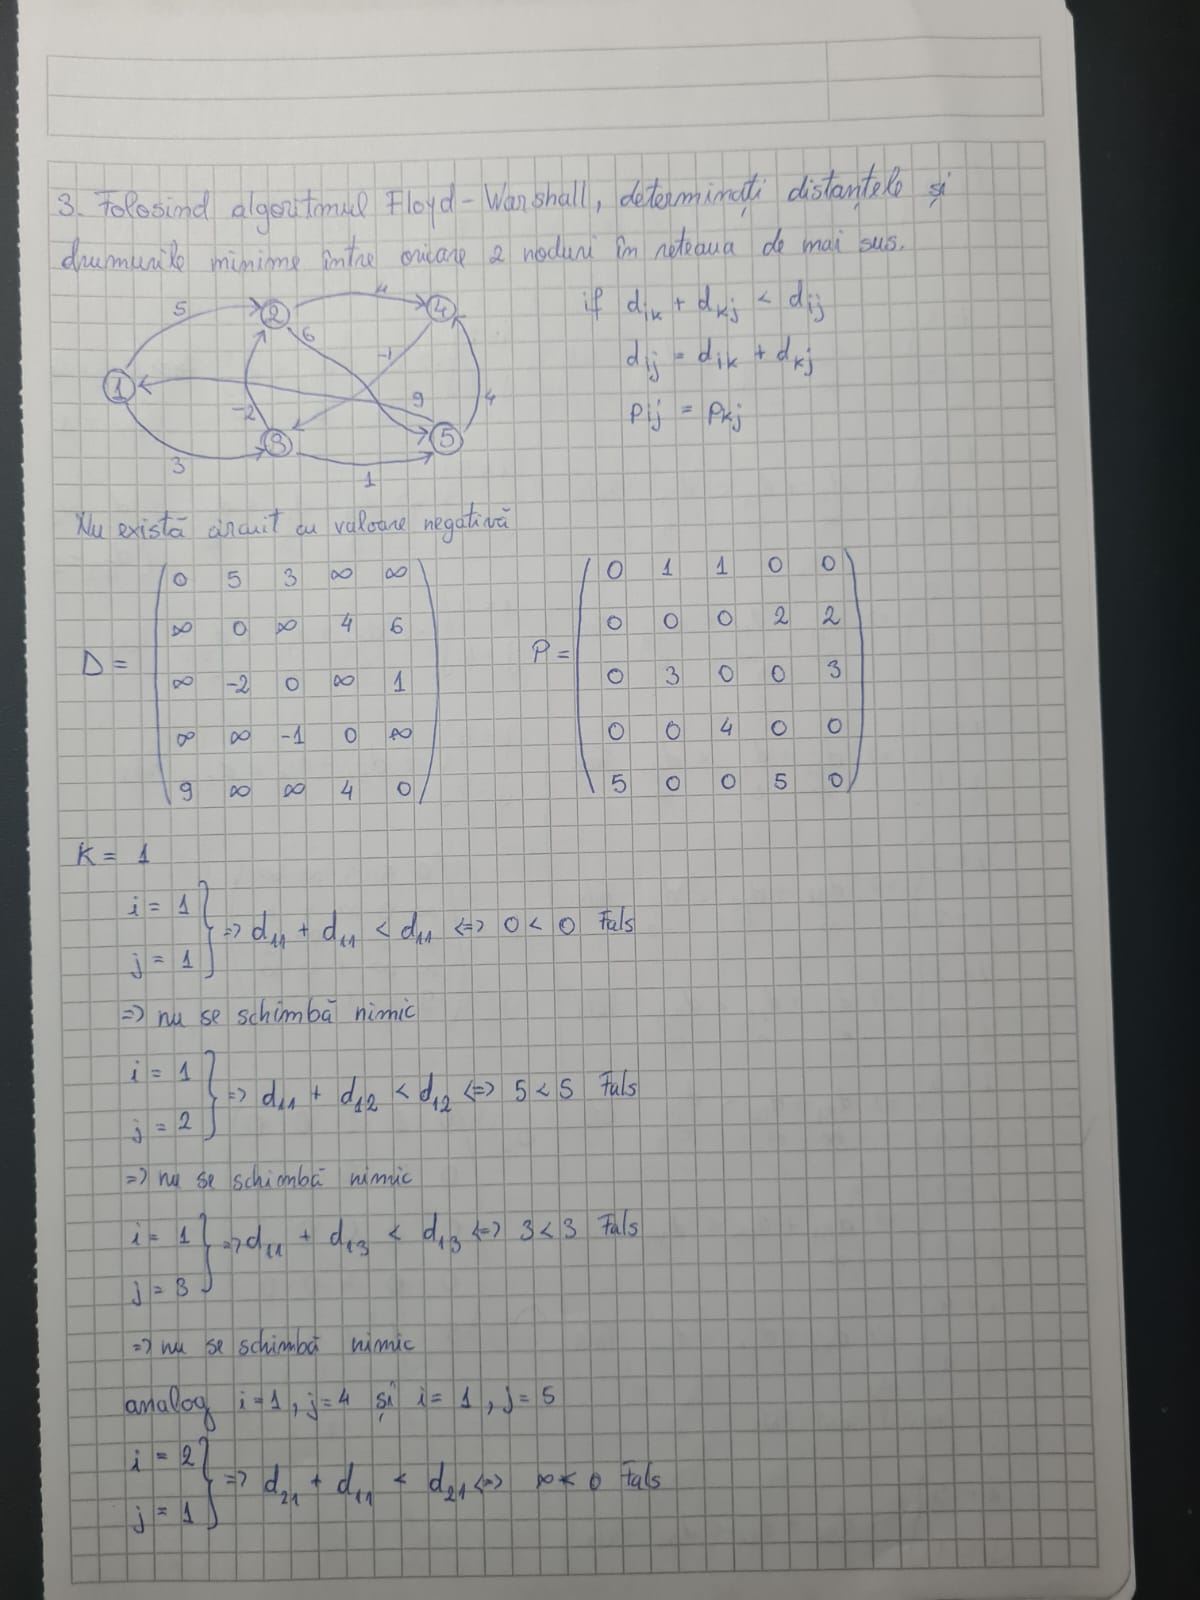 3. Folosind algoritmul Floyd-Warshall, determinați distanțele și
drumurile minime între oricare 2 noduri în rețeaua de mai sus.
5 2 4 4
6
1 -1
-2 9 4
3 5
3 1
if dik + dkj < dij
dij = dik + dkj
pij = pkj
Nu există circuit cu valoare negativă
D =
0 5 3 ∞ ∞
∞ 0 ∞ 4 6
∞ -2 0 ∞ 1
∞ ∞ -1 0 ∞
9 ∞ ∞ 4 0
P =
0 1 1 0 0
0 0 0 2 2
0 3 0 0 3
0 0 4 0 0
5 0 0 5 0
K = 1
i = 1
j = 1
=> d11 + d11 < d11 <=> 0 < 0 Fals
=> nu se schimbă nimic
i = 1
j = 2
=> d11 + d12 < d12 <=> 5 < 5 Fals
=> nu se schimbă nimic
i = 1
j = 3
=> d11 + d13 < d13 <=> 3 < 3 Fals
=> nu se schimbă nimic
analog i=1, j=4 și i=1, j=5
i = 2
j = 1
=> d21 + d11 < d21 <=> ∞ < 0 Fals